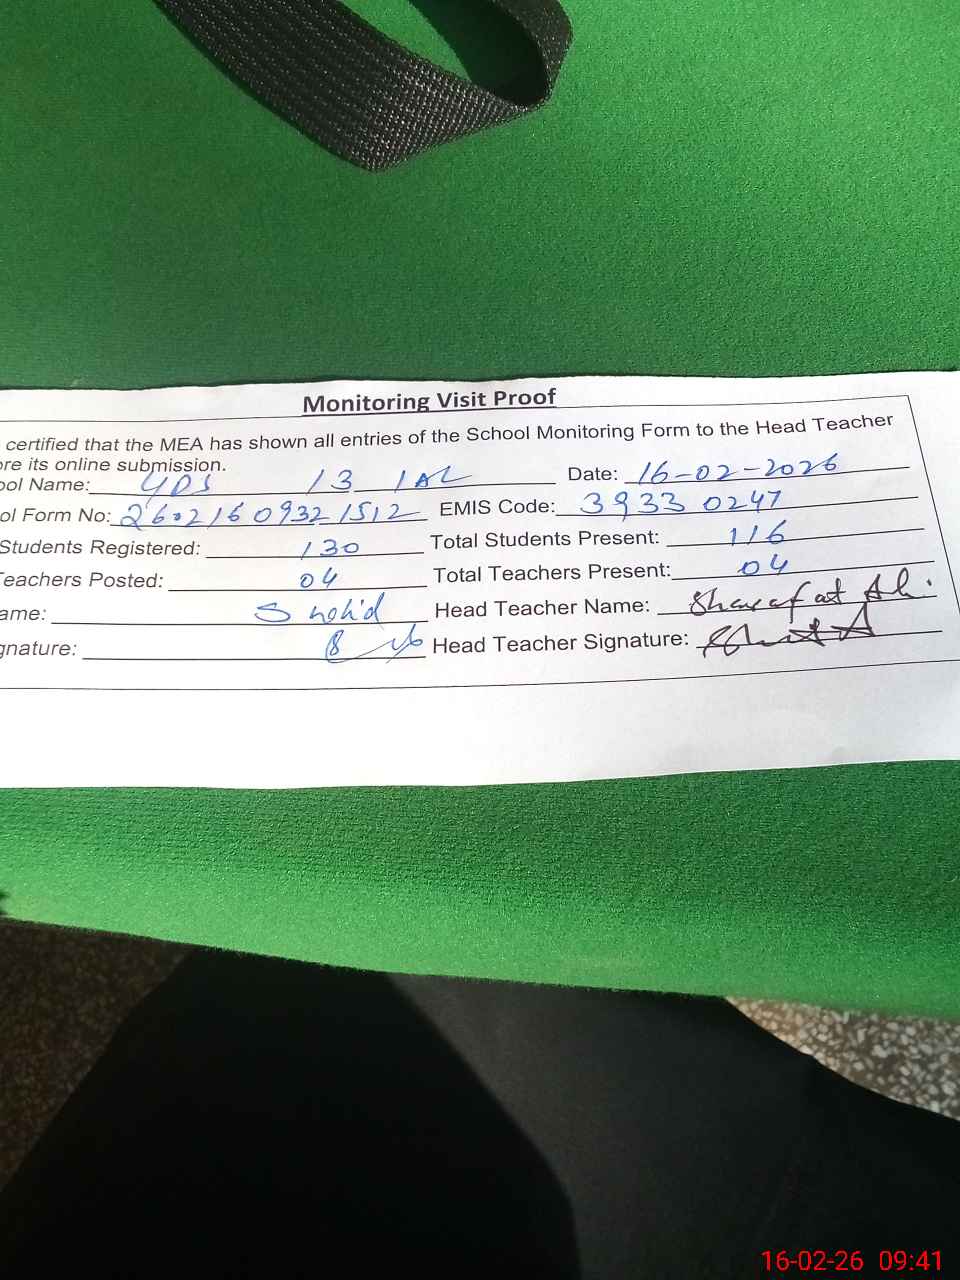 Monitoring Visit Proof
certified that the MEA has shown all entries of the School Monitoring Form to the Head Teacher
ore its online submission.
ool Name: GPS 13 1AL Date: 16-02-2026
ol Form No: 2602160932 1512 EMIS Code: 3933 0247
Students Registered: 130 Total Students Present: 116
Teachers Posted: 04 Total Teachers Present: 04
ame: Head Teacher Name: Sharafat Ali.
gnature: Head Teacher Signature:
16-02-26 09:41